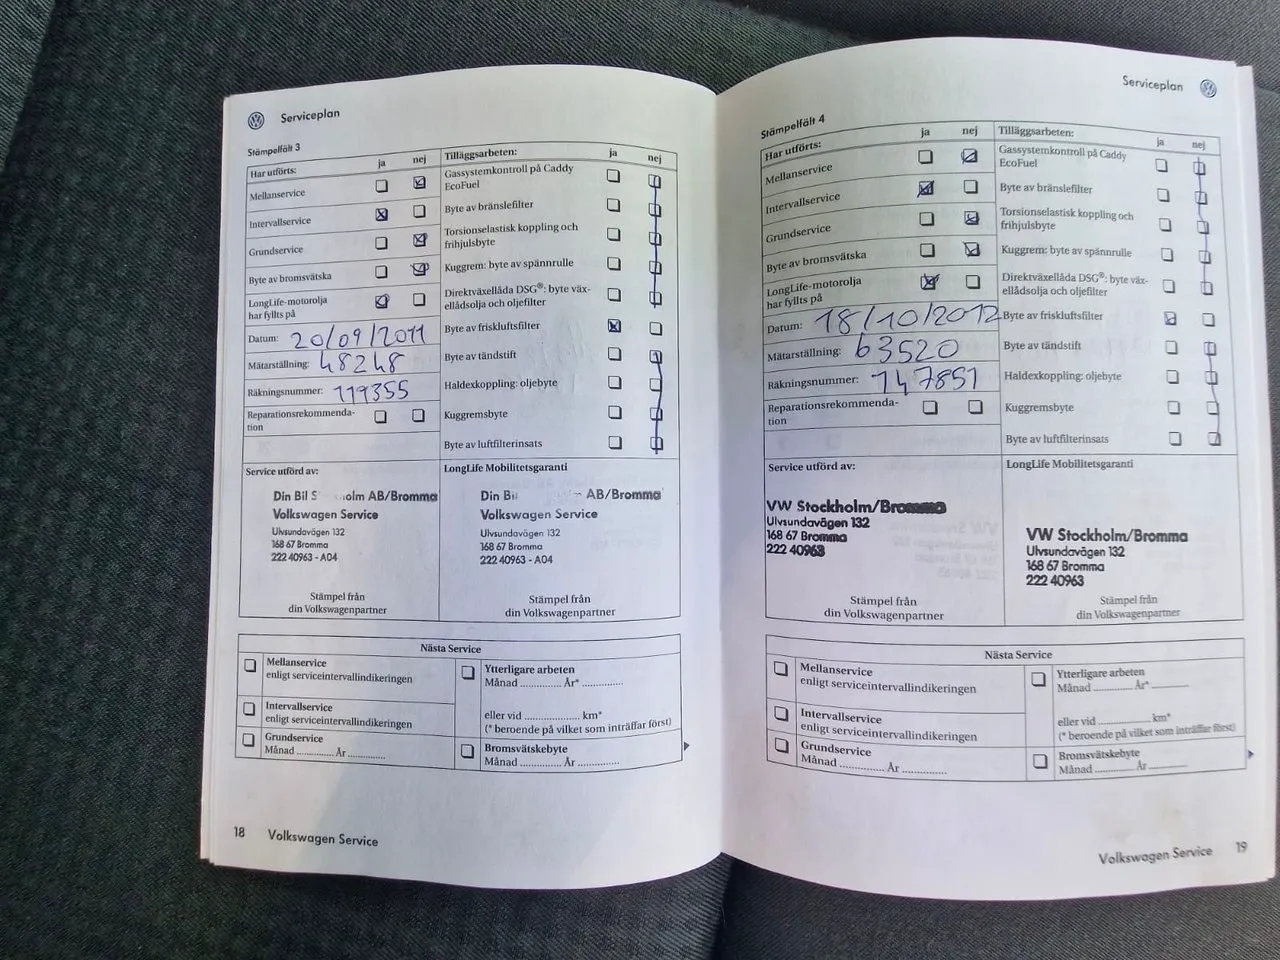 Serviceplan
Stämpelfält 3
Har utförts: ja nej
Mellanservice
Intervallservice
Grundservice
Byte av bromsvätska
LongLife-motorolja
har fyllts på
Datum: 20/09/2011
Mätarställning: 48248
Räkningsnummer: 119355
Reparationsrekommenda-
tion
Tilläggsarbeten: ja nej
Gassystemkontroll på Caddy
EcoFuel
Byte av bränslefilter
Torsionselastisk koppling och
frihjulsbyte
Kuggrem: byte av spännrulle
Direktväxellåda DSG®: byte väx-
ellådsolja och oljefilter
Byte av friskluftsfilter
Byte av tändstift
Haldexkoppling: oljebyte
Kuggremsbyte
Byte av luftfilterinsats
Service utförd av:
Din Bil S olm AB/Bromma
Volkswagen Service
Ulvsundavägen 132
168 67 Bromma
222 40963 - A04
Stämpel från
din Volkswagenpartner
LongLife Mobilitetsgaranti
Din Bil AB/Bromma
Volkswagen Service
Ulvsundavägen 132
168 67 Bromma
222 40963 - A04
Stämpel från
din Volkswagenpartner
Nästa Service
Mellanservice
enligt serviceintervallindikeringen
Intervallservice
enligt serviceintervallindikeringen
Grundservice
Månad ............. År .............
Ytterligare arbeten
Månad .............. År* ..............
eller vid ................... km*
(* beroende på vilket som inträffar först)
Bromsvätskebyte
Månad .............. År ..............
18 Volkswagen Service
Serviceplan
Stämpelfält 4
Har utförts: ja nej
Mellanservice
Intervallservice
Grundservice
Byte av bromsvätska
LongLife-motorolja
har fyllts på
Datum: 18/10/2012
Mätarställning: 63520
Räkningsnummer: 147851
Reparationsrekommenda-
tion
Tilläggsarbeten: ja nej
Gassystemkontroll på Caddy
EcoFuel
Byte av bränslefilter
Torsionselastisk koppling och
frihjulsbyte
Kuggrem: byte av spännrulle
Direktväxellåda DSG®: byte väx-
ellådsolja och oljefilter
Byte av friskluftsfilter
Byte av tändstift
Haldexkoppling: oljebyte
Kuggremsbyte
Byte av luftfilterinsats
Service utförd av:
VW Stockholm/Bromma
Ulvsundavägen 132
168 67 Bromma
222 40963
Stämpel från
din Volkswagenpartner
LongLife Mobilitetsgaranti
VW Stockholm/Bromma
Ulvsundavägen 132
168 67 Bromma
222 40963
Stämpel från
din Volkswagenpartner
Nästa Service
Mellanservice
enligt serviceintervallindikeringen
Intervallservice
enligt serviceintervallindikeringen
Grundservice
Månad ............... År ...............
Ytterligare arbeten
Månad ............. År* .............
eller vid .................. km*
(* beroende på vilket som inträffar först)
Bromsvätskebyte
Månad ............. År .............
Volkswagen Service 19